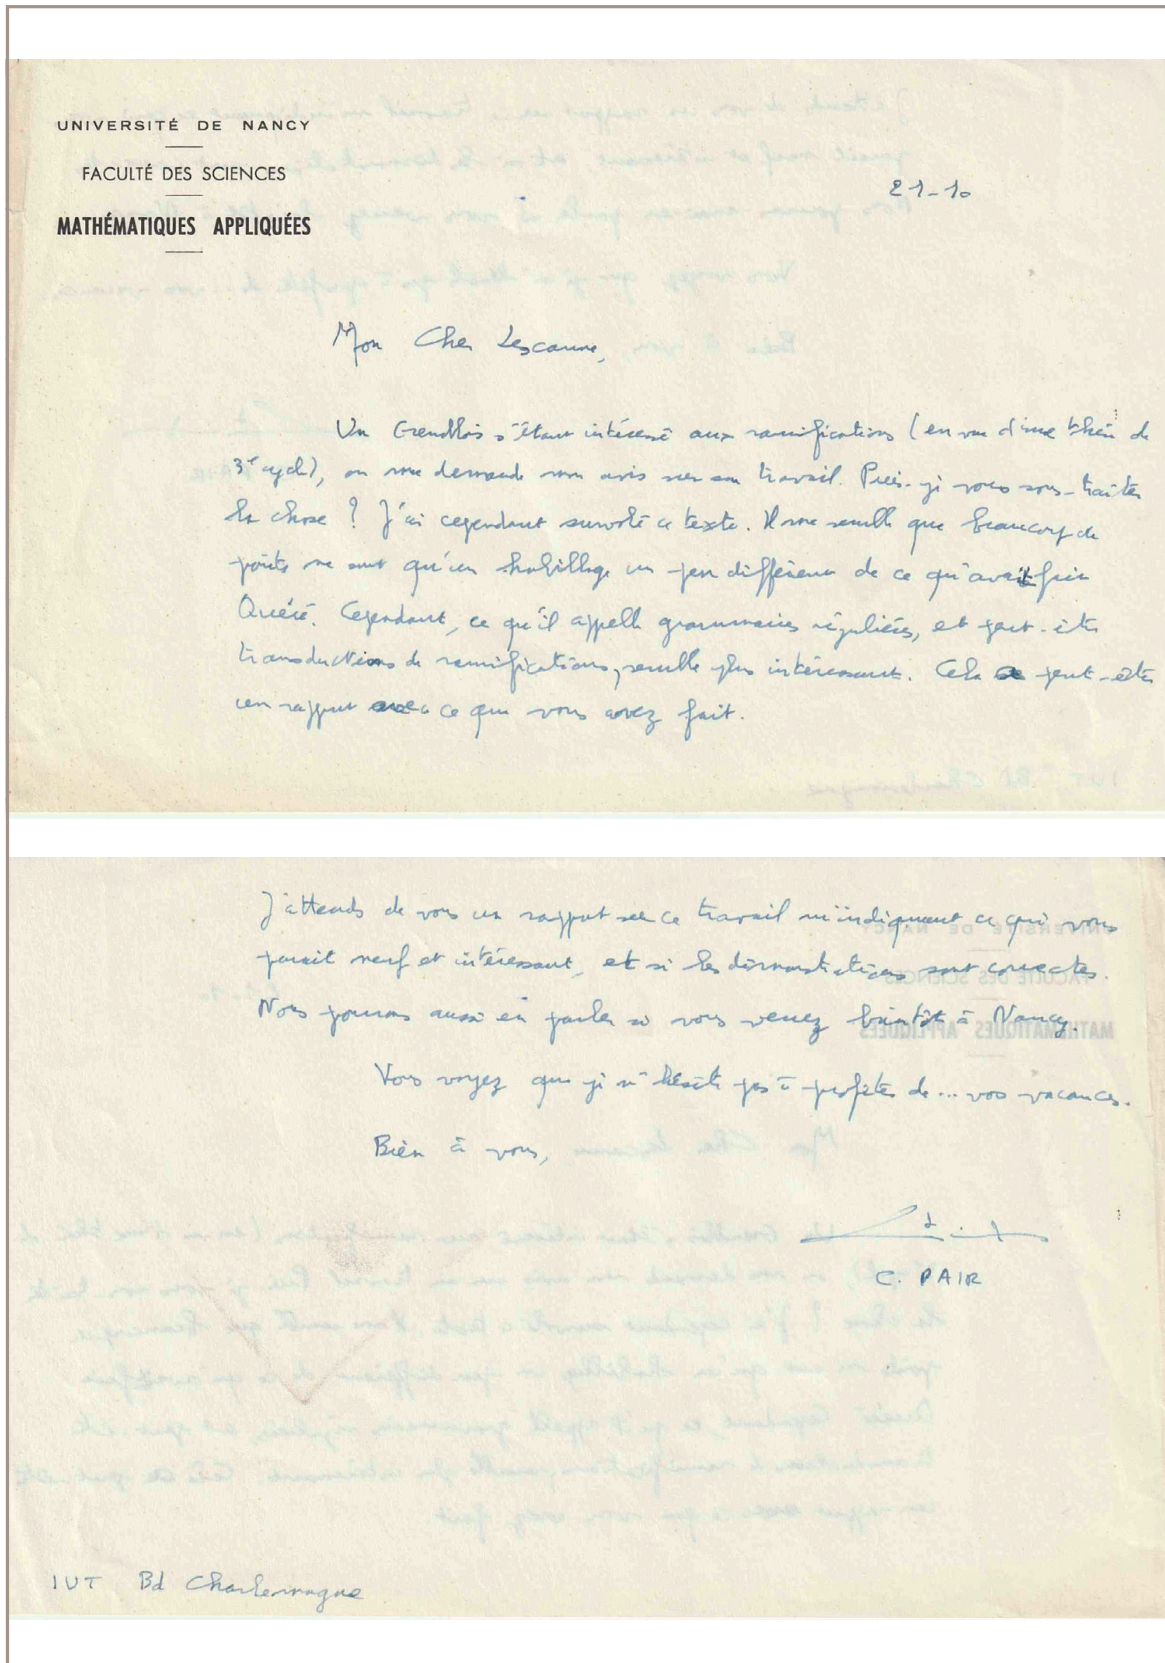 UNIVERSITÉ DE NANCY
FACULTÉ DES SCIENCES
MATHÉMATIQUES APPLIQUÉES
21-10
Mon Cher Lescanne,
Un Grenoblois s'étant intéressé aux ramifications (en vue d'une thèse de
3e cycle), on me demande mon avis sur son travail. Puis-je vous sous-traiter
la chose ? J'ai cependant survolé ce texte. Il me semble que beaucoup de
points ne sont qu'un habillage un peu différent de ce qu'avait fait
Quéré. Cependant, ce qu'il appelle grammaires régulières, et peut-être
transductions de ramifications, semble plus intéressant. Cela a peut-être
un rapport avec ce que vous avez fait.
J'attends de vous un rapport sur ce travail m'indiquant ce qui vous
parait neuf et intéressant, et si les démonstrations sont correctes.
Nous pourrons aussi en parler si vous venez bientôt à Nancy.
Vous voyez que je n'hésite pas à profiter de... vos vacances.
Bien à vous,
C. PAIR
IUT Bd Charlemagne